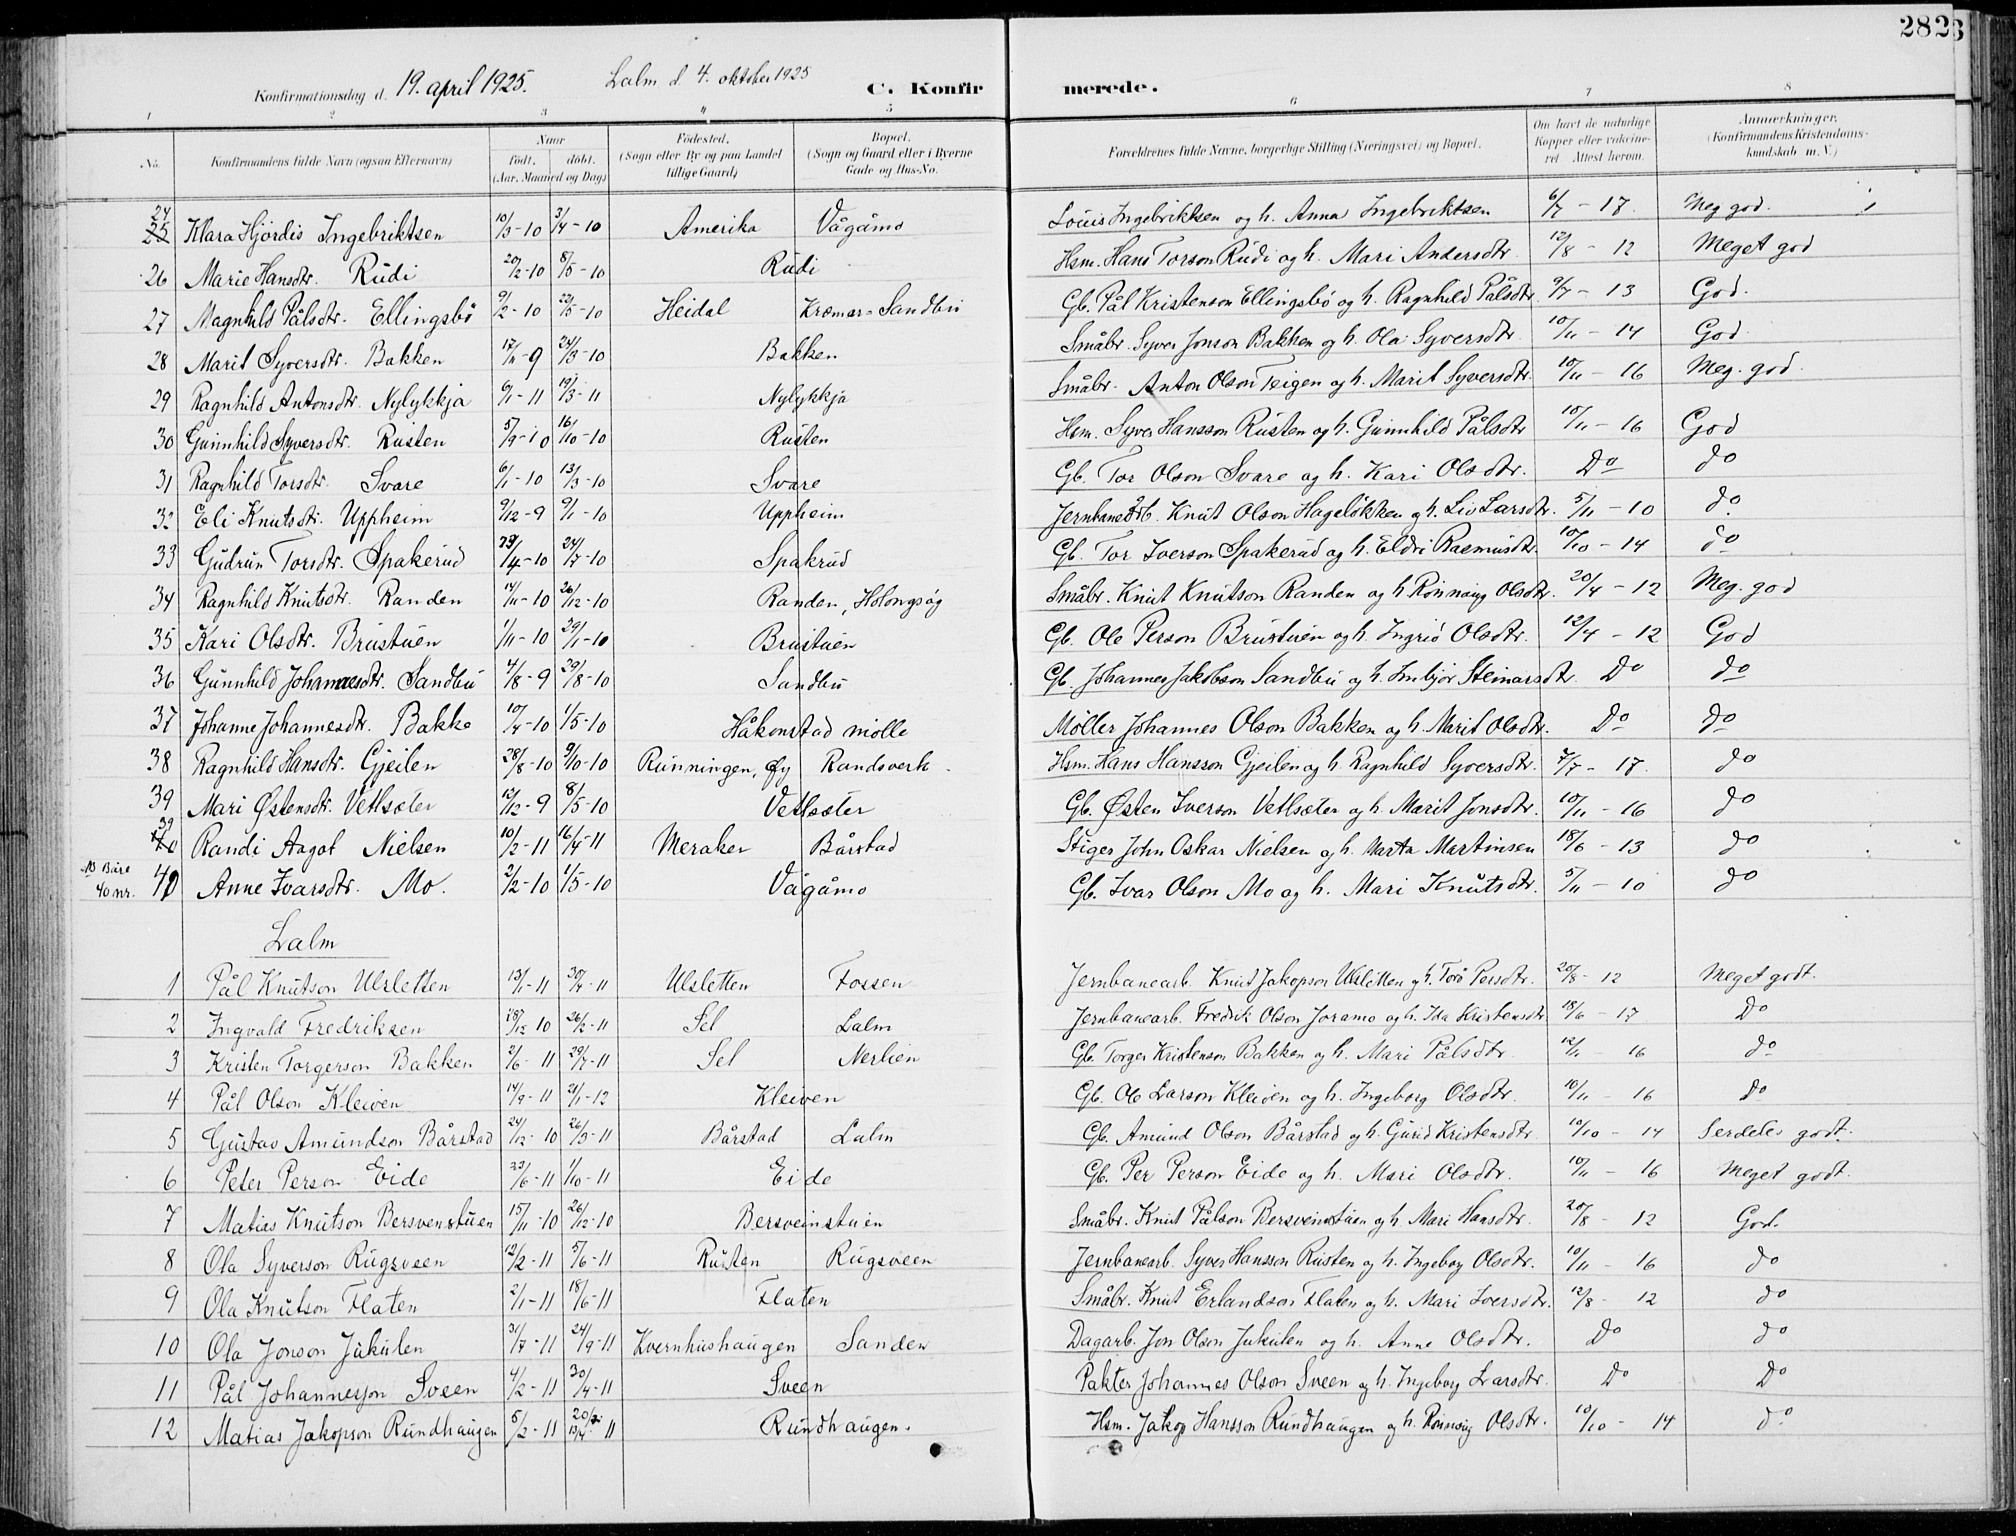 282
Konfirmationsdag d. 19. april 1925. Lalm d. 4. oktober 1925 C. Konfirmerede.
1 2 3 4 5 6 7 8
No. Konfirmandens fulde Navn (ogsaa Efternavn) Naar Født. døbt. (Aar, Maaned og Dag) Fødested. (Sogn eller By og paa Landet tillige Gaard) Bopæl. (Sogn og Gaard eller i Byerne Gade og Hus-No. Forældrenes fulde Navne, borgerlige Stilling (Næringsvei) og Bopæl. Om havt de naturlige Kopper eller vakcineret Attest herom. Anmærkninger. (Konfirmandens Kristendomskundskab m. V.)
24 25 Klara Hjördis Ingebriktsen 10/3-10 3/4-10 Amerika Vågåmo Louis Ingebriktsen og h. Anna Ingebriktsen 6/7 - 17. Meg god.
26 Marie Hansdtr. Rudi 20/2-10 8/5-10 Rudi Hsm. Hans Torson Rudi og h. Mari Andersdtr. 12/8 - 12 Meget god
27 Magnhild Pålsdtr. Ellingsbö 9/2-10 22/5-10 Heidal Kræmar-Sandbu Gb. Pål Kristenson Ellingsbö og h. Ragnhild Pålsdtr. 9/7 - 13 God.
28 Marit Syversdtr. Bakken 17/11-9 24/3-10 Bakken Småbr. Syver Jonson Bakken og h. Ola Syversdtr. 10/11 - 14 God
29 Ragnhild Antonsdtr. Nylykkja 6/1-11 19/3-11 Nylykkja Småbr. Anton Olson Teigen og h. Marit Syversdtr. 10/11 - 16 Meg. god.
30 Gunnhild Syversdtr. Rusten 5/9-10 16/10-10 Rusten Hsm. Syver Hansson Rusten og h. Gunnhild Pålsdtr 10/11 - 16 God
31 Ragnhild Torsdtr. Svare 6/1-10 13/3-10 Svare Gb. Tor Olson Svare og h. Kari Olsdtr. Do do
32 Eli Knutsdtr. Uppheim 9/12-9 9/1-10 Uppheim Jernbanearb. Knut Olson Hagelökken og h. Liv Larsdtr. 5/11 - 10 do
33 Gudrun Torsdtr. Spakerud 23/4-10 24/7-10 Spakrud Gb. Tor Iverson Spakerud og h. Eldri Rasmusdtr. 10/10 - 14 do
34 Ragnhild Knutsdtr. Randen 14/11-10 26/12-10 Randen, Holongsög Småbr. Knut Knutson Randen og h Rönnaug Olsdtr. 20/4 - 12 Meg. god
35 Kari Olsdtr. Brustuen 1/11-10 29/1-10 Brustuen Gb. Ole Person Brustuen og h. Ingrid Olsdtr. 12/4 - 12 God
36 Gunnhild Johannesdtr. Sandbu 4/8-9 29/8-10 Sandbu Gb. Johannes Jakobson Sandbu og h. Imbjör Steinarsdtr. Do do
37 Johanne Johannesdtr. Bakke 10/4-10 1/5-10 Håkonstad mölle Möller Johannes Olson Bakken og h. Marit Olsdtr. Do do
38 Ragnhild Hansdtr. Gjeilen 28/8-10 9/10-10 Runningen, Øy Randsverk Hsm. Hans Hansson Gjeilen og h. Ragnhild Syversdtr. 7/7 - 17. do
39 Mari Østensdtr. Vetlsæter 12/12-9 8/5-10 Vetlsæter Gb. Østen Iverson Vetlsæter og h. Marit Jonsdtr. 10/11 - 16 do
39 40 Randi Aagot Nielsen 10/2-11 16/4-11 Meraker Bårstad Stiger John Oskar Nielsen og h. Marta Martinsen 18/6 - 13 do
NB Bare 40 nr. 40 Anne Ivarsdtr. Mo. 2/2-10 1/5-10 Vågåmo Gb. Ivar Olson Mo og h. Mari Knutsdtr. 5/11 - 10 do
Lalm
1 Pål Knutson Ulsletten 13/1-11 30/4-11 Ulsletten Fossen Jernbanearb. Knut Jakopson Ulsletten og h. Torö Persdtr. 20/8 - 12 Meget godt.
2 Ingvald Fredriksen 28/12-10 26/2-11 Sel Lalm Jernbanearb. Fredrik Olson Joramo og h. Ida Kristensdtr 18/6 - 17 Do
3 Kristen Torgerson Bakken 2/6-11 29/7-11 Sel Nerlien Gb. Torger Kristenson Bakken og h. Mari Pålsdtr. 12/11 - 16 do
4 Pål Olson Kleiven 14/9-11 21/1-12 Kleiven Gb. Ole Larson Kleiven og h. Ingeborg Olsdtr. 10/11 - 16 Do
5 Gustav Amundson Bårstad 24/12-10 26/3-11 Bårstad Lalm Gb. Amund Olson Bårstad og h. Gurid Kristensdtr 10/10 - 14 Serdeles godt.
6 Peter Person Eide 23/6-11 1/10-11 Eide Gb. Per Person Eide og h. Mari Olsdtr. 10/11 - 16 Meget godt.
7 Matias Knutson Bersvenstuen 15/11-10 26/12-10 Bersveinstuen Småbr. Knut Pålson Bersveinstuen og h. Mari Hansdtr. 20/8 - 12 God.
8 Ola Syverson Rugsveen 12/2-11 5/6-11 Rusten Rugsveen Jernbanearb. Syver Hansson Rusten og h. Ingeborg Olsdtr. 10/11 - 16 do
9 Ola Knutson Flaten 2/1-11 18/6-11 Flaten Småbr. Knut Erlandson Flaten og h. Mari Iversdtr. 12/8 - 12 do
10 Ola Jonson Jukulen 31/7-11 24/9-11 Kvernhushaugen Sanden Dagarb. Jon Olson Jukulen og h. Anne Olsdtr. Do do
11 Pål Johannesson Sveen 4/2-11 30/4-11 Sveen Pakter Johannes Olson Sveen og h. Ingeborg Larsdtr. Do Do
12 Matias Jakopson Rundhaugen 5/2-11 13/4 11 Rundhaugen. Hsm. Jakop Hansson Rundhaugen og h. Rönnaug Olsdtr. 10/10 - 14 do